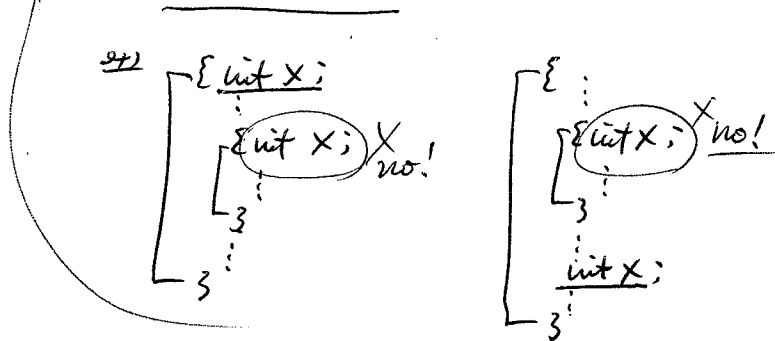 { int x;
{ int x; X
no!
}
}
{
{ int x; X no!
}
int x;
}